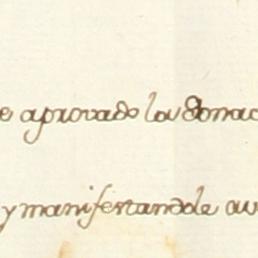 e aprovado la donac
y manifestandole av